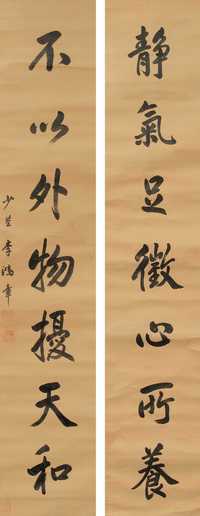 静氣足徵心所養
不以外物擾天和
少荃李鴻章